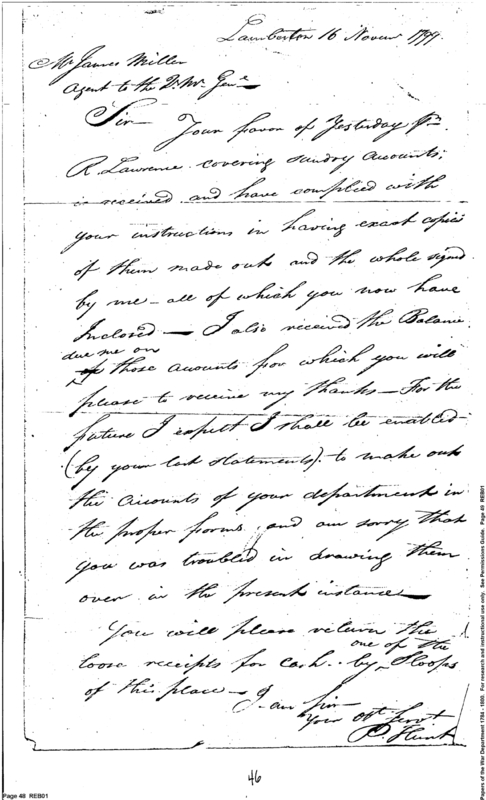 Lamberton 16 Novem 1799.
Mr James Miller
Agent to the Qr. Mr. Genl
Sir Your favor of Yesterday pr
R. Lawrence covering sundry accounts;
is received and have complied with
your instructions in having exact copies
of them made out and the whole signed
by me - all of which you now have
Inclosed — I also received the Balance
due me on
those acounts for which you will
please to receive my thanks — For the
future I expect I shall be enabled
(by your last statements) to make out
the accounts of your department in
the proper forms, and am sorry that
you was troubled in drawing them
over in the present instance —
You will please return the
one of the
loose receipts for Cash by Sloops
of this place — I am Sir
Your Obt Servt
P. Hunt
46
Page 48 REB01
Papers of the War Department 1784 - 1800. For research and instructional use only. See Permissions Guide. Page 49 REB01